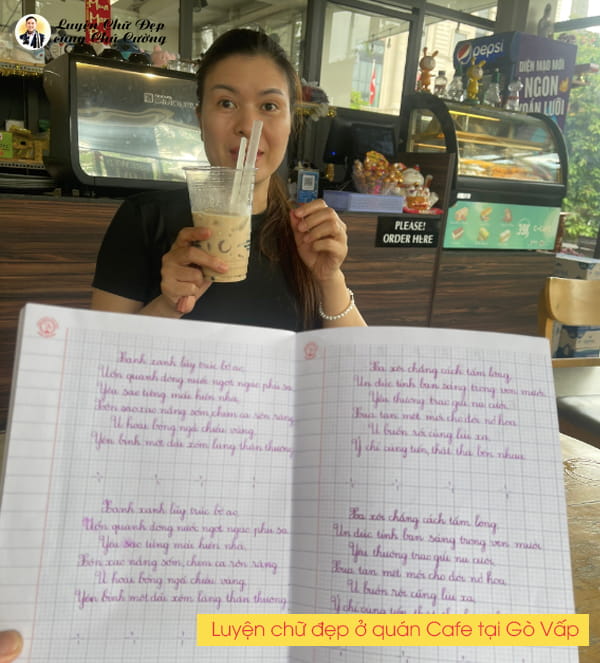 Luyện Chữ Đẹp
cùng Chú Cường
pepsi
DIỆN MẠO MỚI
NGON
PLEASE!
ORDER HERE
39K
Xanh xanh lũy trúc bờ ao,
Uốn quanh dòng nước ngọt ngào phù sa.
Yêu sao từng mái hiên nhà,
Bồn sao xào nắng sớm, chim ca rộn ràng.
U hoài bóng ngả chiều vàng,
Yên bình một dải xóm làng thân thương.
Xanh xanh lũy trúc bờ ao,
Uốn quanh dòng nước ngọt ngào phù sa.
Yêu sao từng mái hiên nhà,
xào nắng sớm, chim ca rộn ràng.
U hoài bóng ngả chiều vàng,
Yên bình một dải xóm làng thân thương.
Xa xôi chẳng cách tấm lòng,
Un đúc tình bạn sáng trong vẹn mười.
Yêu thương trao gửi nụ cười,
Xua tan mệt mỏi cho đời nở hoa.
U buồn rồi cũng lùi xa,
Ý chí cùng tiến, thật thà bên nhau.
Xa xôi chẳng cách tấm lòng,
Un đúc tình bạn sáng trong vẹn mười.
Yêu thương trao gửi nụ cười,
Xua tan mệt mỏi cho đời nở hoa.
U buồn rồi cũng lùi xa,
Ý chí cùng tiến, thật thà
Luyện chữ đẹp ở quán Cafe tại Gò Vấp